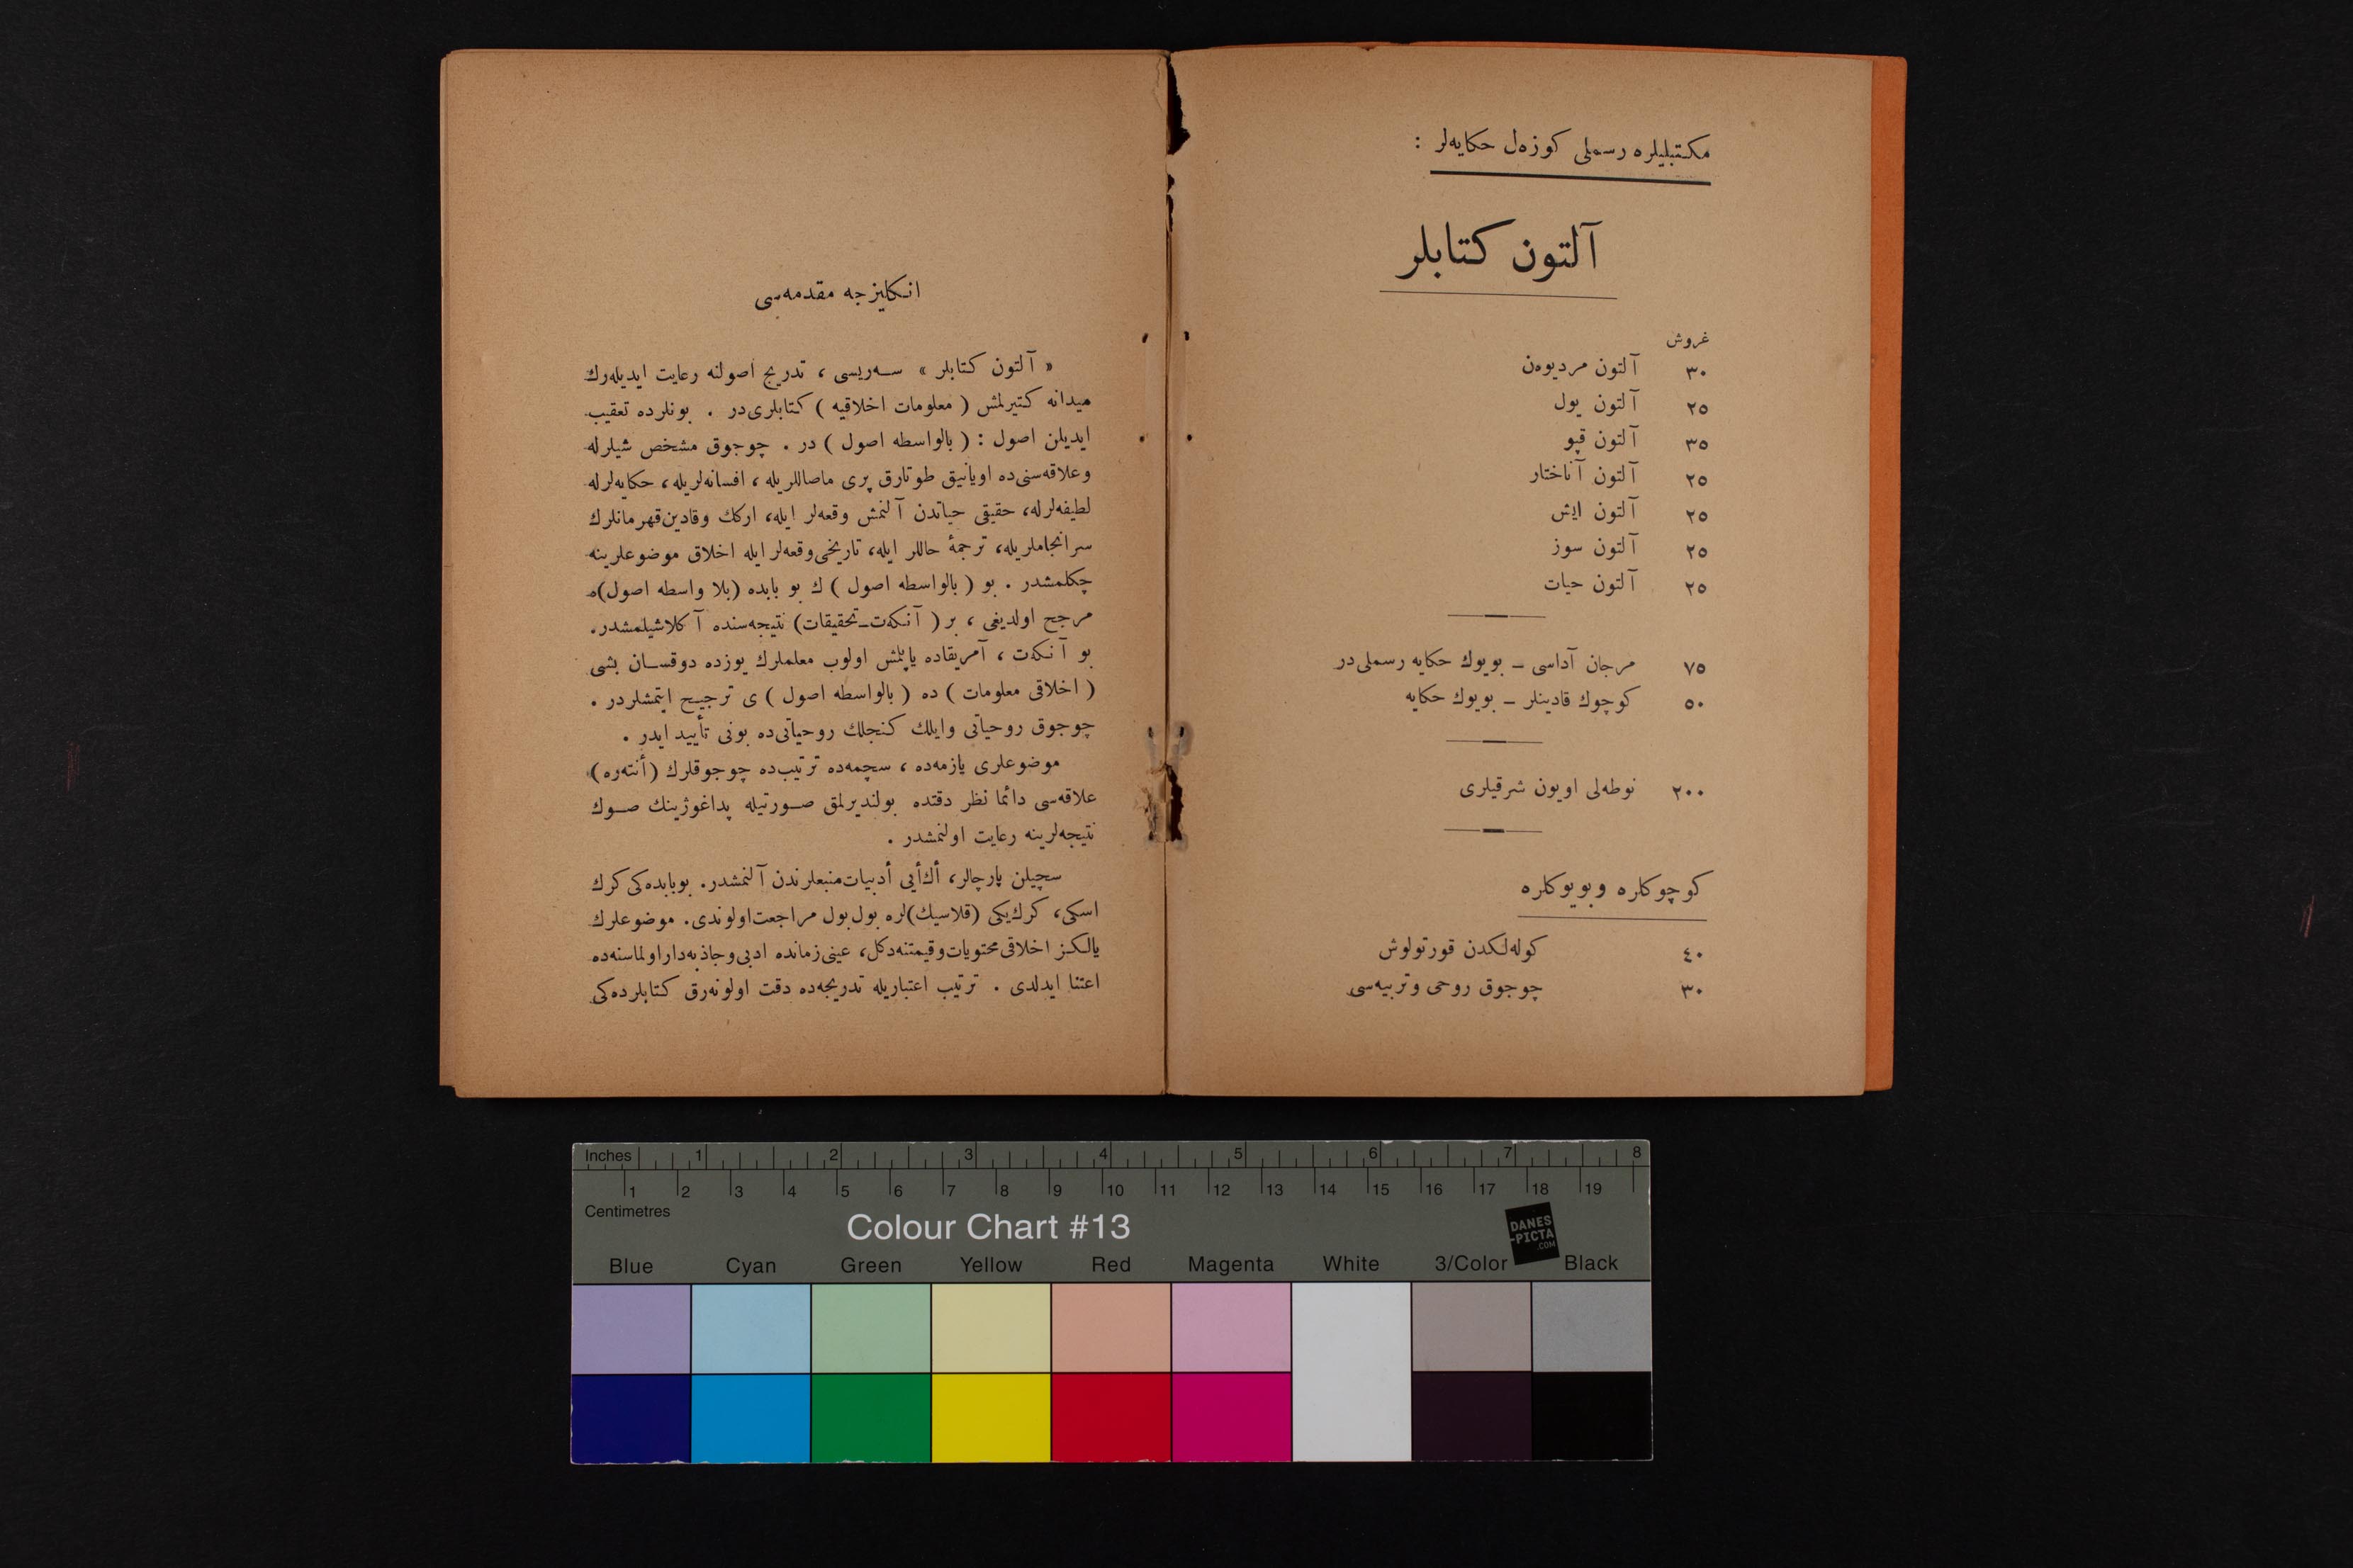 مكتبليلره رسملی كوزه‌ل حكايه‌لر :
آلتون كتابلر
غروش
۳۰ آلتون مرديوەن
۲۵ آلتون يول
۳۵ آلتون قپو
۲۵ آلتون آناختار
۲۵ آلتون ايش
۲۵ آلتون سوز
۲۵ آلتون حيات
۷۵ مرجان آداسی ـ بويوك حكايه رسملی‌در
۵۰ كوچوك قادينلر ـ بويوك حكايه
۲۰۰ نوطه‌لی اويون شرقيلری
كوچوكلره وبويوكلره
٤۰ كوله‌لكدن قورتولوش
۳۰ چوجوق روحی وتربيه‌سی
انكليزجه مقدمه‌سی
« آلتون كتابلر » سه‌ريسی ، تدريج اصولنه رعايت ايديله‌رك
ميدانه كتيرلمش ( معلومات اخلاقيه ) كتابلری‌در . بونلرده تعقيب
ايديلن اصول : ( بالواسطه اصول ) در . چوجوق مشخص شيلرله
وعلاقه‌سنی‌ده اويانيق طوتارق پری ماصاللريله ، افسانه‌لريله ، حكايه‌لرله
لطيفه‌لرله، حقيقی حياتدن آلنمش وقعه‌لر ايله، اركك وقادين‌قهرمانلرك
سرانجاملريله، ترجمۀ حاللر ايله، تاريخی‌وقعه‌لر ايله اخلاق موضوعلرينه
چكلمشدر . بو ( بالواسطه اصول ) ك بو بابده (بلا واسطه اصول)ه
مرجح اولديغی ، بر ( آنكه‌ت ـ تحقيقات) نتيجه‌سنده آكلاشيلمشدر.
بو آنكه‌ت ، آمريقاده ياپلمش اولوب معلملرك يوزده دوقسان بشی
( اخلاقی معلومات ) ده ( بالواسطه اصول ) ی ترجيح ايتمشلردر .
چوجوق روحياتی وايلك كنجلك روحياتی‌ده بونی تأييد ايدر .
موضوعلری يازمه‌ده ، سچمه‌ده ترتيب‌ده چوجوقلرك (أنته‌ره)
علاقه‌سی دائما نظر دقتده بولنديرلمق صورتيله پداغوژينك صوك
نتيجه‌لرينه رعايت اولنمشدر .
سچيلن پارچالر، أك‌أيی أدبيات‌منبعلرندن آلنمشدر. بوبابده‌كی كرك
اسكی، كرك‌يكی (قلاسيك)لره بول‌بول مراجعت‌اولوندی. موضوعلرك
يالكز اخلاقی‌محتويات‌وقيمتنه‌دكل، عينی‌زمانده ادبی‌وجاذبه‌داراولماسنه‌ده
اعتنا ايدلدی . ترتيب اعتباريله تدريجه‌ده دقت اولونه‌رق كتابلرده‌كی
Inches 1 2 3 4 5 6 7 8
1 2 3 4 5 6 7 8 9 10 11 12 13 14 15 16 17 18 19
Centimetres
Colour Chart #13
DANES
-PICTA
.COM
Blue Cyan Green Yellow Red Magenta White 3/Color Black